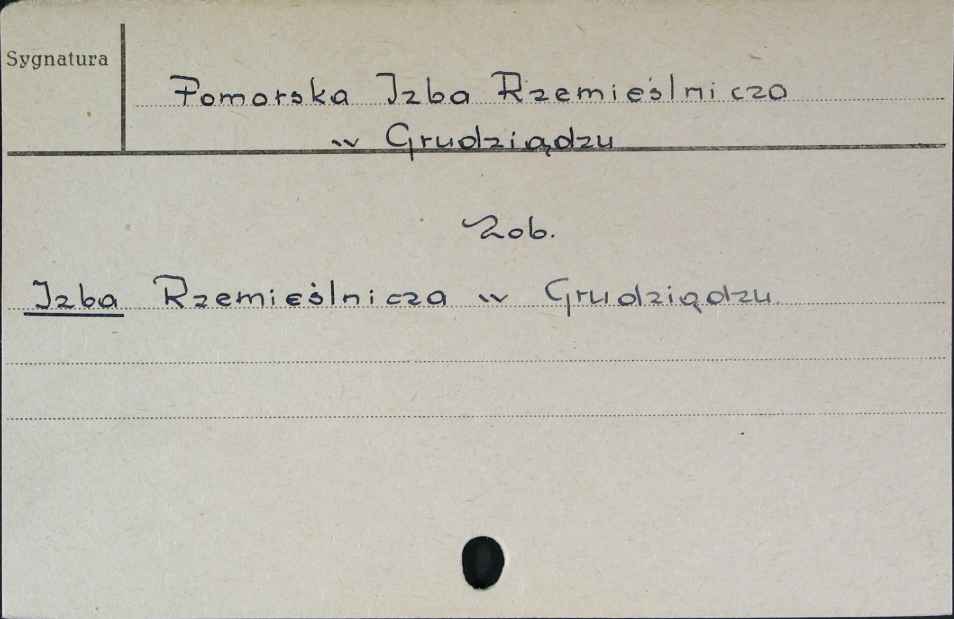 Sygnatura
Pomorska Izba Rzemieślnicza
w Grudziądzu
Zob.
Izba Rzemieślnicza w Grudziądzu